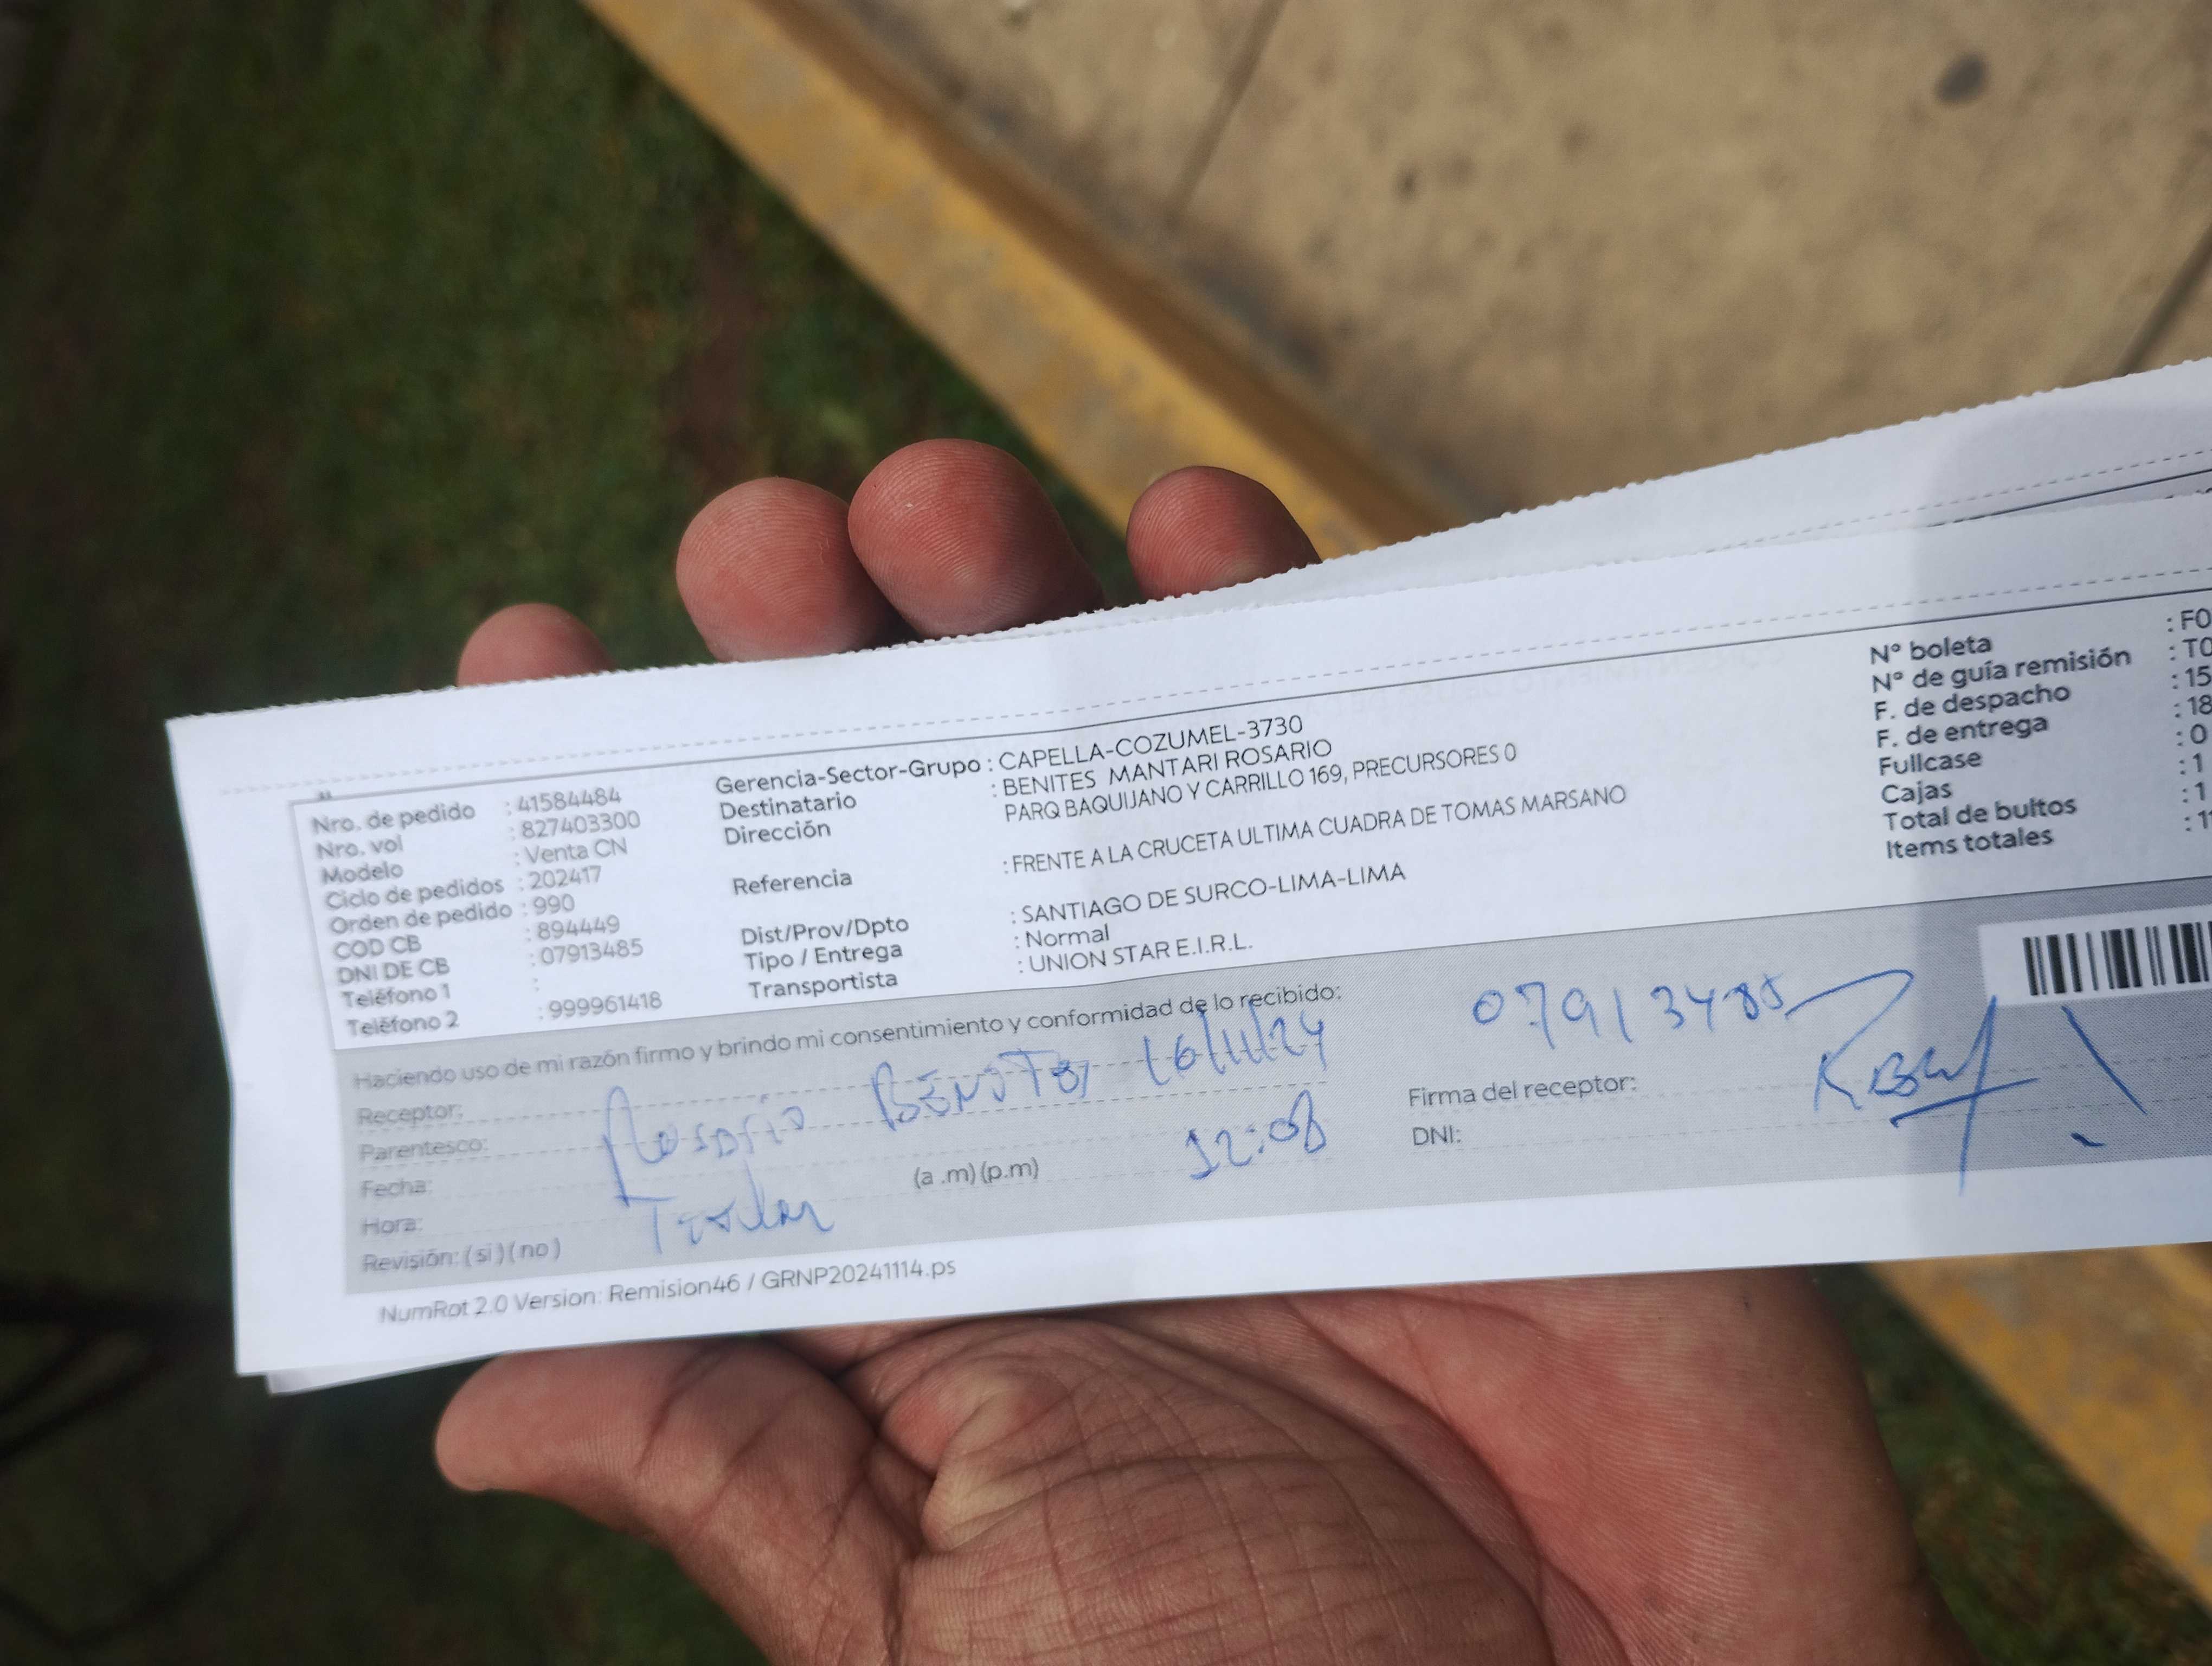 Nro. de pedido : 41584484
Nro. vol : 827403300
Modelo : Venta CN
Ciclo de pedidos : 202417
Orden de pedido : 990
COD CB : 894449
DNI DE CB : 07913485
Teléfono 1 :
Teléfono 2 : 999961418
Gerencia-Sector-Grupo : CAPELLA-COZUMEL-3730
Destinatario : BENITES MANTARI ROSARIO
Dirección PARQ BAQUIJANO Y CARRILLO 169, PRECURSORES 0
Referencia : FRENTE A LA CRUCETA ULTIMA CUADRA DE TOMAS MARSANO
Dist/Prov/Dpto : SANTIAGO DE SURCO-LIMA-LIMA
Tipo / Entrega : Normal
Transportista : UNION STAR E.I.R.L.
N° boleta : F0
N° de guía remisión : T0
F. de despacho : 15
F. de entrega : 18
Fullcase : 0
Cajas : 1
Total de bultos : 1
Items totales : 1
Haciendo uso de mi razón firmo y brindo mi consentimiento y conformidad de lo recibido:
Receptor: Rosario BENITES 16/11/24
Parentesco:
Fecha: Titular
Hora: (a .m) (p.m) 12:08
Revisión: ( si ) ( no )
07913485
Firma del receptor:
DNI:
NumRot 2.0 Version: Remision46 / GRNP20241114.ps